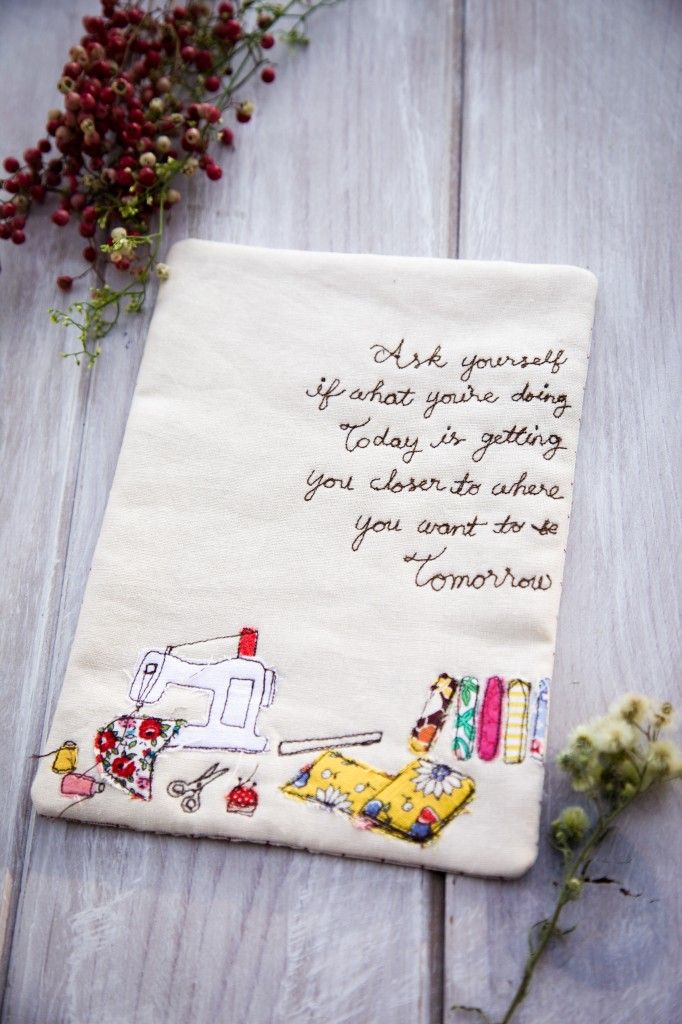 Ask yourself
if what you're doing
Today is getting
you closer to where
you want to be
Tomorrow